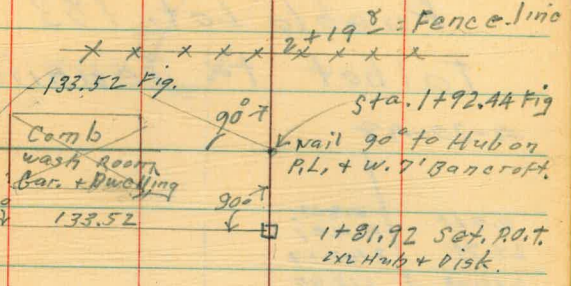 2+19 ± = Fence line
133.52 Fig.
Sta. 1+92.44 Fig
90° ±
Nail 90° to Hub on
P.L. & W. 7' Bancroft.
Comb
wash Room
Gar. & Dwelling
90° ±
133.52
1+81.92 Set. P.O.T.
2x2 Hub & Disk.